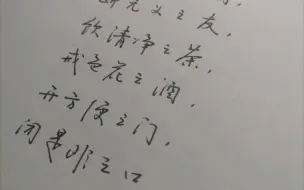 断无义之友，
饮清净之茶，
戒色花之酒，
开方便之门，
闭是非之口